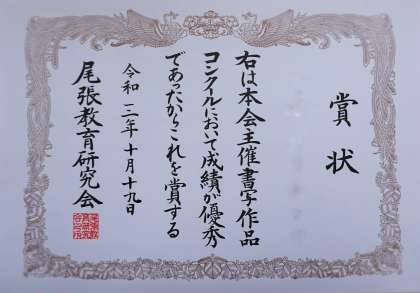 賞状
右は本会主催書写作品
コンクールにおいて成績が優秀
であったからこれを賞する
令和三年十月十九日
尾張教育研究会